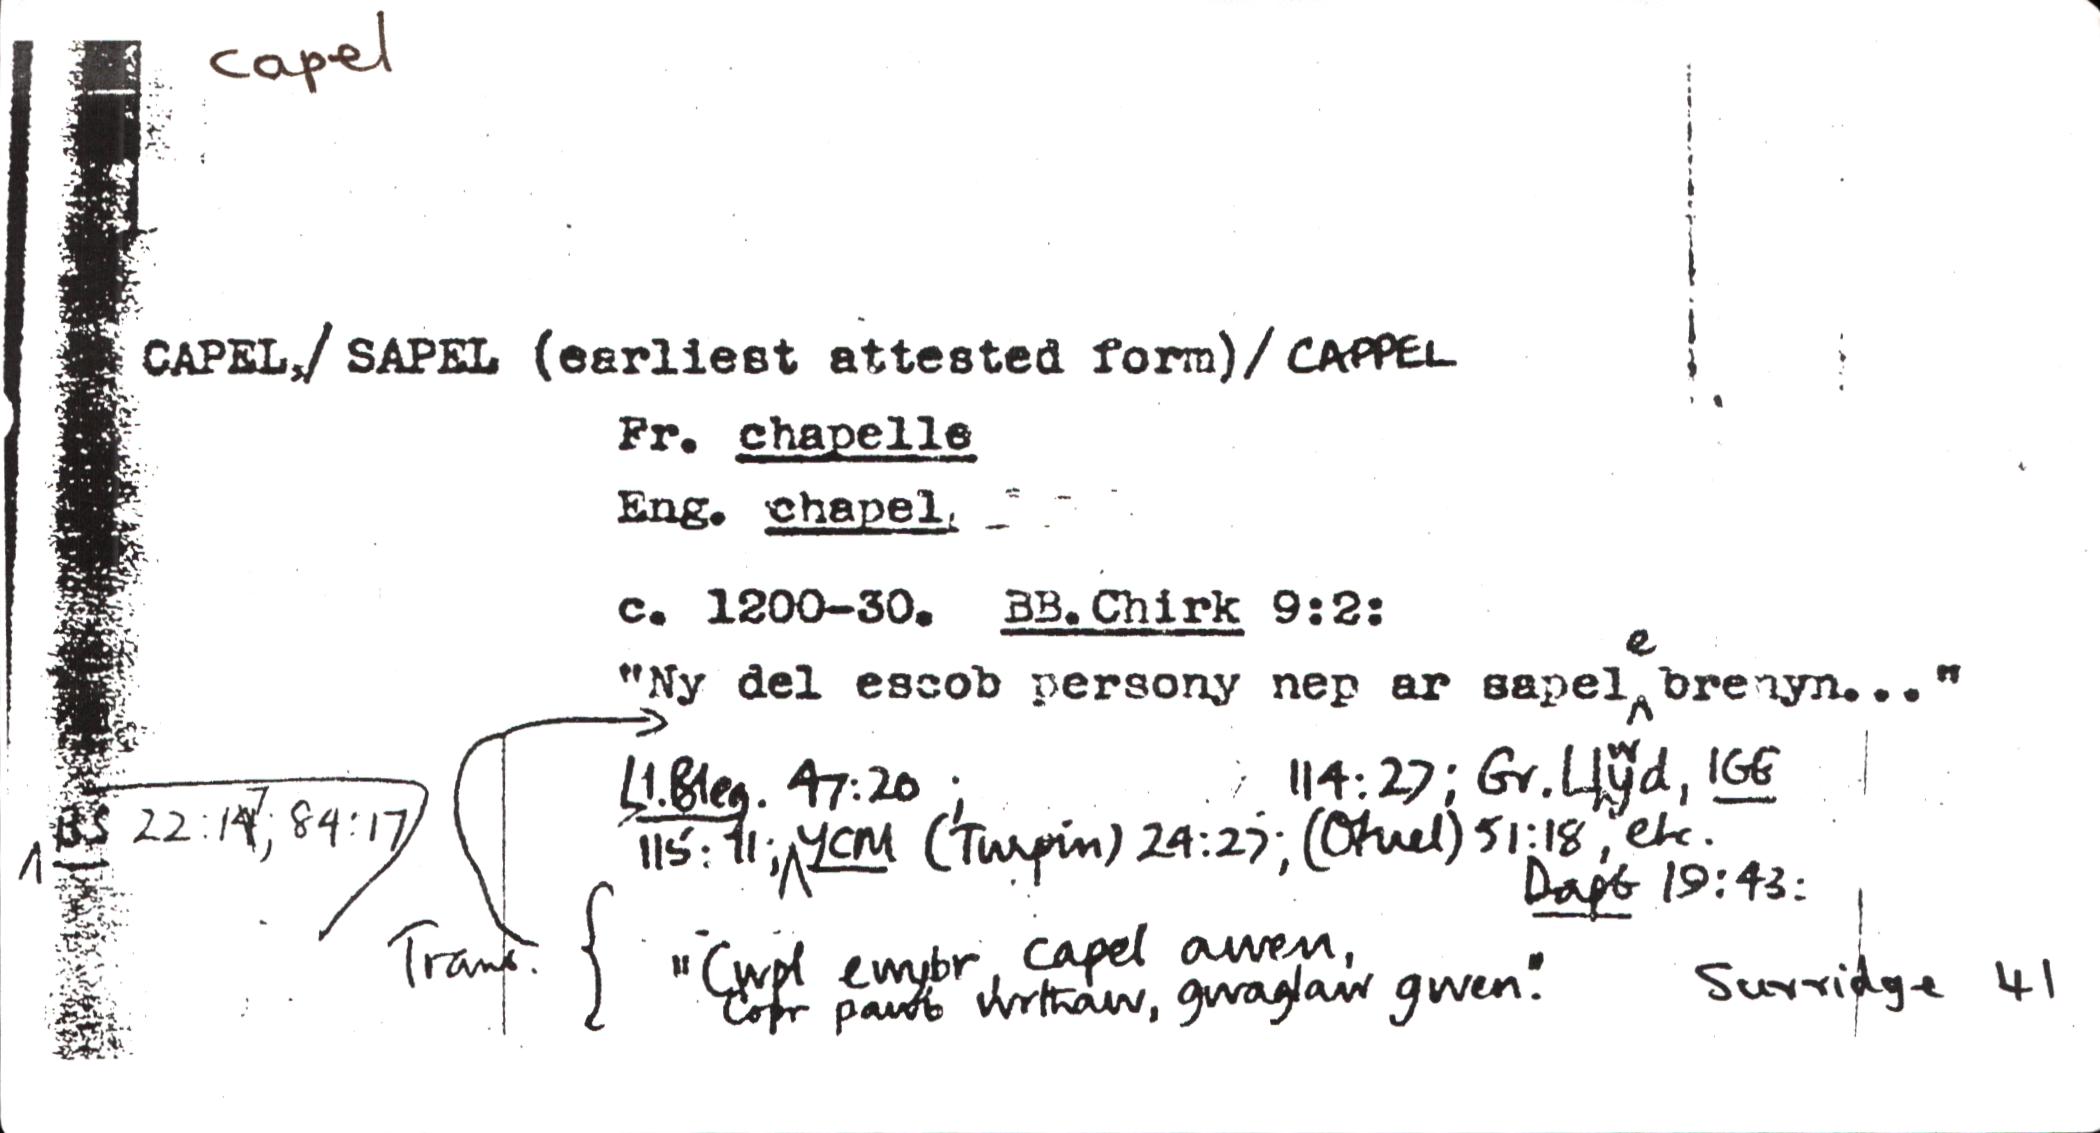 capel
CAPEL,/ SAPEL (earliest attested form)/ CAPPEL
Fr. chapelle
Eng. chapel,
c. 1200-30. BB.Chirk 9:2:
"Ny del escob persony nep ar sapel e brenyn..."
Ll.Bleg. 47:20; 114:27; Gr. Llwyd, IGE
115:11; YCM (Turpin) 24:27; (Otuel) 51:18, etc.
BS 22:17; 84:17
DapG 19:43:
Trans. "Cwpl ewybr, capel awen,
Copr pawb wrthaw, gwaglaw gwen."
Surridge 41